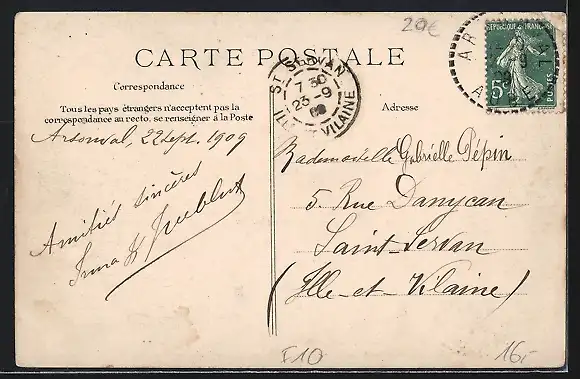 20€
CARTE POSTALE
Correspondance
Tous les pays étrangers n'acceptent pas la
correspondance au recto, se renseigner à la Poste
Arsonval, 22 sept. 1909
Amitiés sincères
ST SERVAN
7 30
23 - 9
09
ILLE-ET-VILAINE
REPUBLIQUE FRANÇAISE
5c
POSTES
Adresse
Mademoiselle Gabrielle Pépin
5. Rue Danycan
Saint-Servan
(Ille-et-Vilaine)
F10
16,-